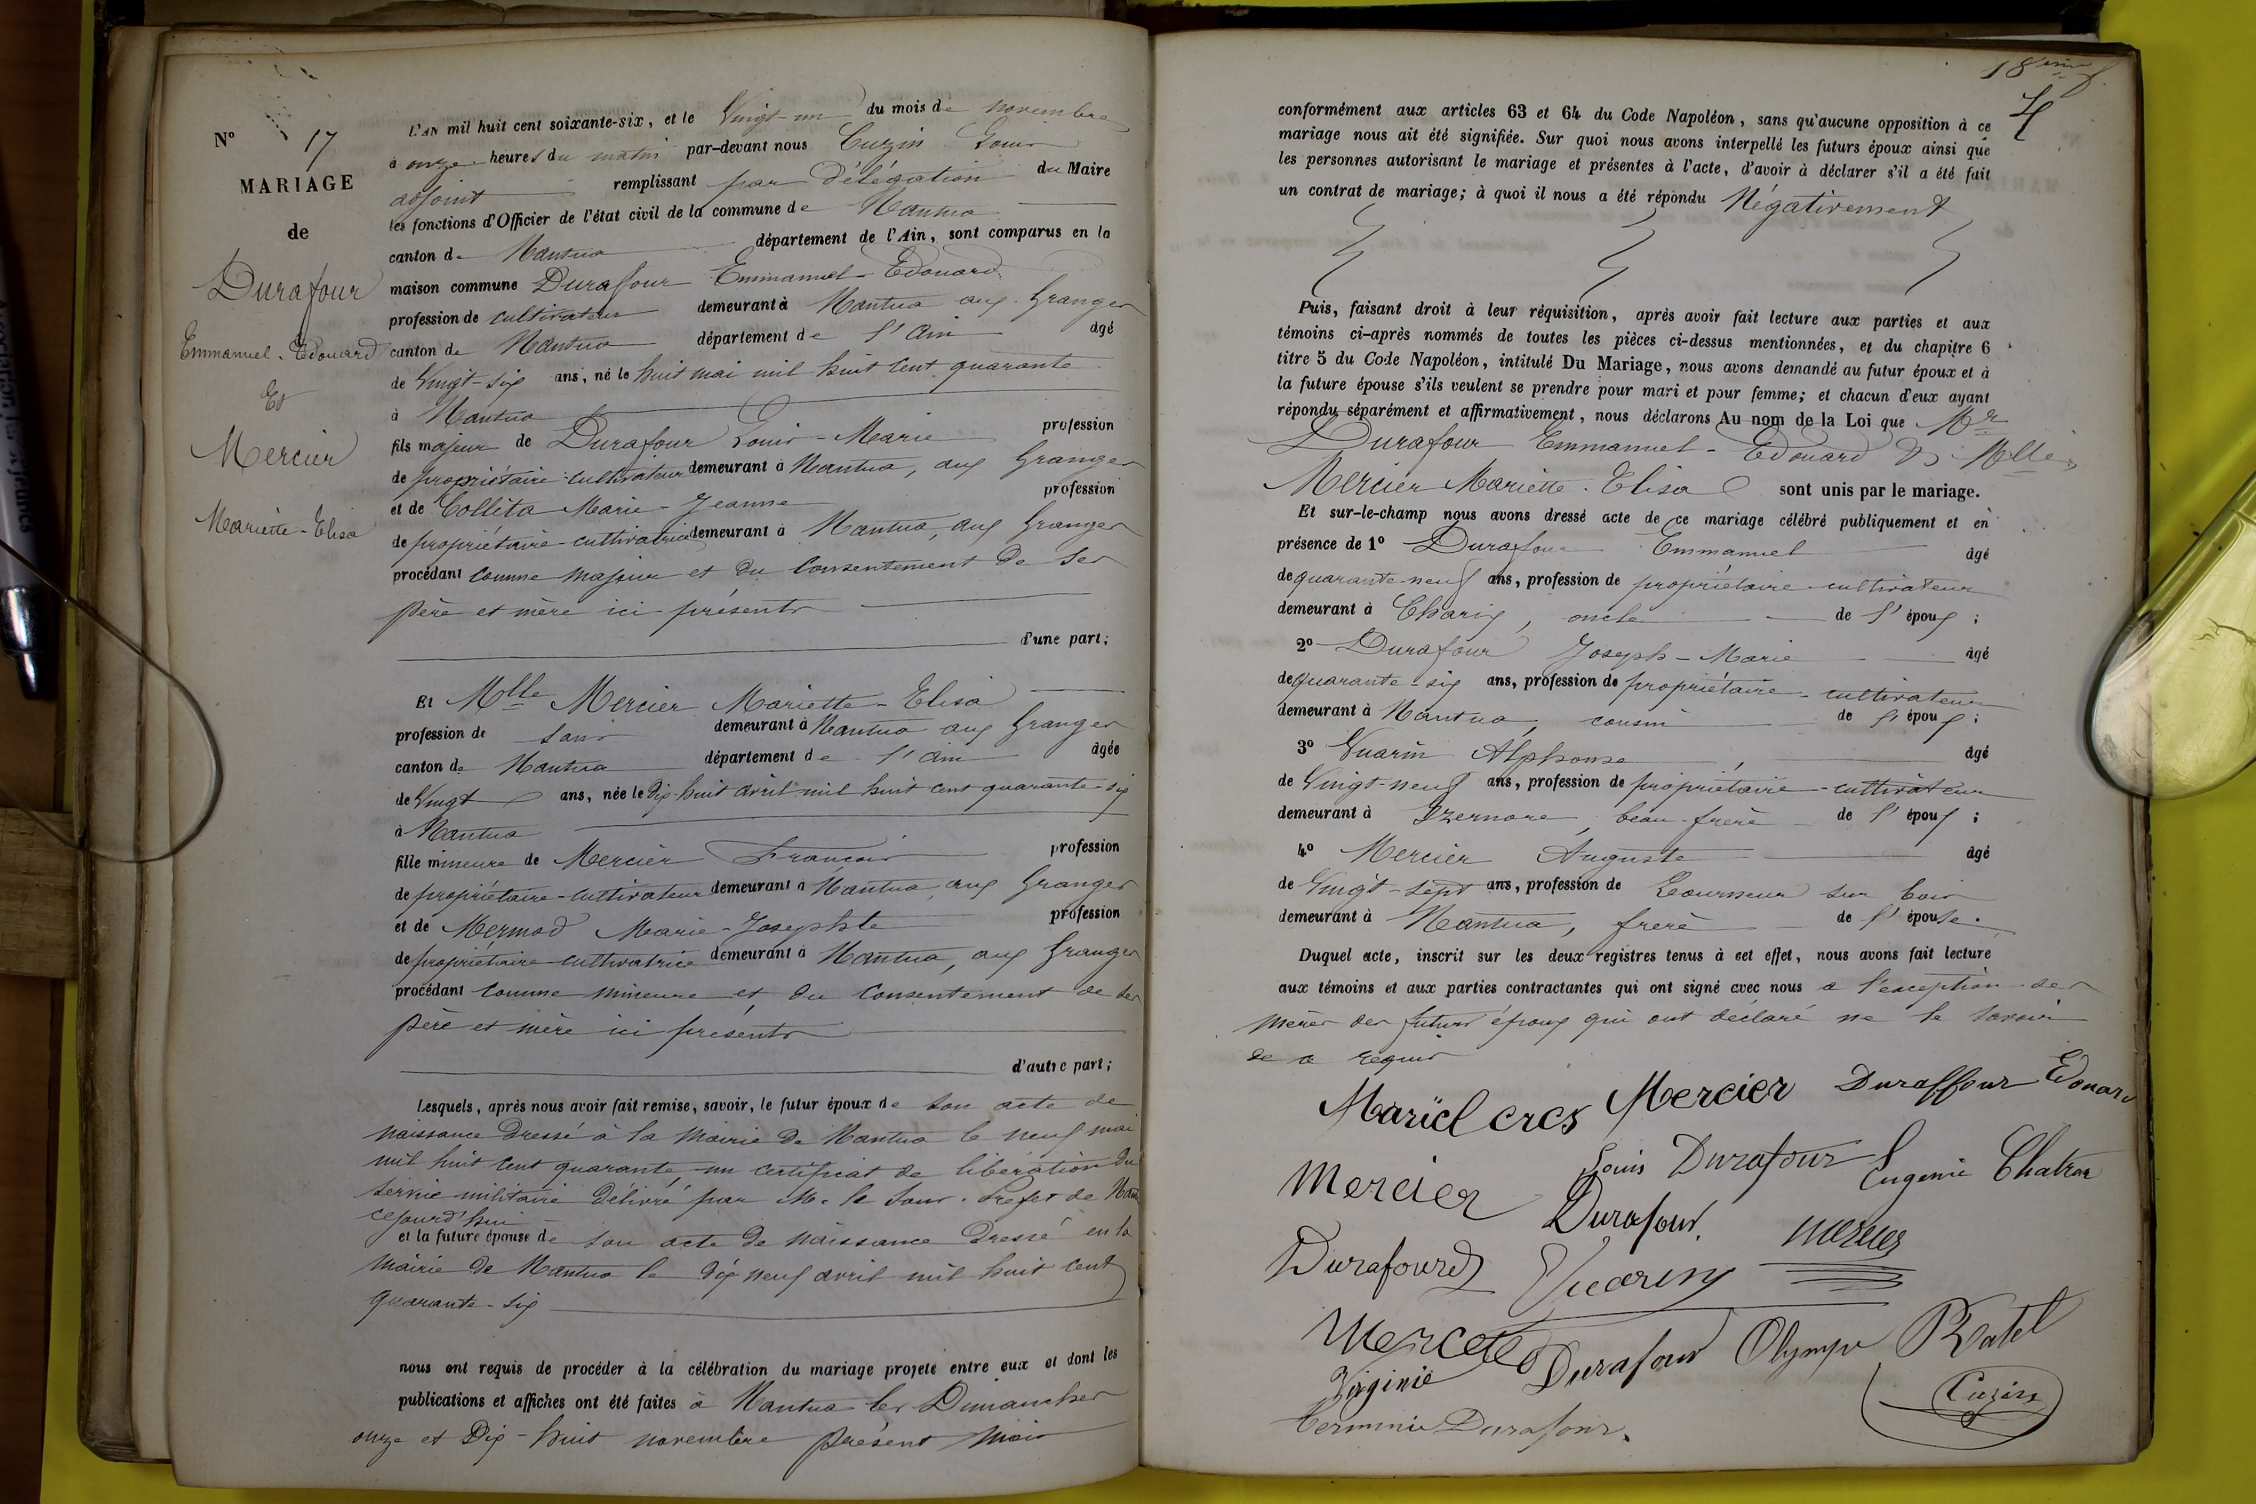 N° 17
MARIAGE
de
Durafour
Emmanuel-Edouard
Et
Mercier
Mariette-Elisa
L'AN mil huit cent soixante-six, et le Vingt-un du mois de novembre
à onze heures du matin par-devant nous Cuzin Louis
adjoint remplissant par Délégation du Maire
les fonctions d'Officier de l'état civil de la commune de Nantua
canton de Nantua département de l'Ain, sont comparus en la
maison commune Durafour Emmanuel-Edouard
profession de cultivateur demeurant à Nantua aux Granges
canton de Nantua département de l'Ain âgé
de Vingt-six ans, né le huit mai mil huit cent quarante
à Nantua
fils majeur de Durafour Louis-Marie profession
de propriétaire-cultivateur demeurant à Nantua, aux Granges
et de Colléta Marie-Jeanne profession
de propriétaire-cultivatrice demeurant à Nantua, aux Granges
procédant comme majeur et du consentement de ses
père et mère ici présents
d'une part;
Et Mlle Mercier Mariette-Elisa
profession de sans demeurant à Nantua aux Granges
canton de Nantua département de l'Ain âgée
de Vingt ans, née le Dix-huit avril mil huit cent quarante-six
à Nantua
fille mineure de Mercier François profession
de propriétaire-cultivateur demeurant à Nantua, aux Granges
et de Mermod Marie-Josephte profession
de propriétaire-cultivatrice demeurant à Nantua, aux Granges
procédant comme mineure et du consentement de ses
père et mère ici présents
d'autre part;
Lesquels, après nous avoir fait remise, savoir, le futur époux de son acte de
naissance Dressé à la Mairie de Nantua le neuf mai
mil huit cent quarante, un certificat de libération du
service militaire délivré par M. le Sous-Préfet de
cejourd'hui
et la future épouse de son acte de naissance Dressé en la
Mairie de Nantua le dix neuf avril mil huit cent
quarante-six
nous ont requis de procéder à la célébration du mariage projeté entre eux et dont les
publications et affiches ont été faites à Nantua les Dimanches
onze et Dix-huit novembre présent mois
18
conformément aux articles 63 et 64 du Code Napoléon, sans qu'aucune opposition à ce
mariage nous ait été signifiée. Sur quoi nous avons interpellé les futurs époux ainsi que
les personnes autorisant le mariage et présentes à l'acte, d'avoir à déclarer s'il a été fait
un contrat de mariage; à quoi il nous a été répondu Négativement
Puis, faisant droit à leur réquisition, après avoir fait lecture aux parties et aux
témoins ci-après nommés de toutes les pièces ci-dessus mentionnées, et du chapitre 6
titre 5 du Code Napoléon, intitulé Du Mariage, nous avons demandé au futur époux et à
la future épouse s'ils veulent se prendre pour mari et pour femme; et chacun d'eux ayant
répondu séparément et affirmativement, nous déclarons Au nom de la Loi que Mr
Durafour Emmanuel-Edouard et Mlle
Mercier Mariette-Elisa sont unis par le mariage.
Et sur-le-champ nous avons dressé acte de ce mariage célébré publiquement et en
présence de 1° Durafour Emmanuel âgé
de quarante-neuf ans, profession de propriétaire-cultivateur
demeurant à Charix, oncle de l'époux;
2° Durafour Joseph-Marie âgé
de quarante-six ans, profession de propriétaire-cultivateur
demeurant à Nantua, cousin de l'époux;
3° Vuarin Alphonse, âgé
de Vingt-neuf ans, profession de propriétaire-cultivateur
demeurant à Izernore, beau-frère de l'époux;
4° Mercier Auguste âgé
de Vingt-sept ans, profession de Tourneur sur bois
demeurant à Nantua, frère de l'épouse.
Duquel acte, inscrit sur les deux registres tenus à cet effet, nous avons fait lecture
aux témoins et aux parties contractantes qui ont signé avec nous à l'exception des
mères des futurs époux qui ont déclaré ne le savoir
de ce requis
Mercier Duraffour Edouard
Mercier Louis Durafour Eugenie
Durafour Mercier
Durafour Vuarin
Mercier Durafour Olympe
Virginie Cuzin
Durafour